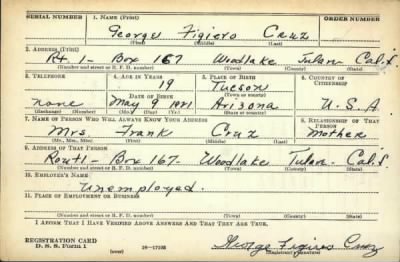 SERIAL NUMBER 1. NAME (Print) ORDER NUMBER
George Figiero Cruz
(First) (Middle) (Last)
2. ADDRESS (Print)
Rt. 1- Box 167 Woodlake Tulare Calif.
(Number and street or R. F. D. number) (Town) (County) (State)
3. TELEPHONE 4. AGE IN YEARS 5. PLACE OF BIRTH 6. COUNTRY OF CITIZENSHIP
19 Tucson
DATE OF BIRTH (Town or county)
none May 9 1921 Arizona U.S.A.
(Exchange) (Number) (Mo.) (Day) (Yr.) (State or country)
7. NAME OF PERSON WHO WILL ALWAYS KNOW YOUR ADDRESS 8. RELATIONSHIP OF THAT PERSON
Mrs. Frank Cruz Mother
(Mr., Mrs., Miss) (First) (Middle) (Last)
9. ADDRESS OF THAT PERSON
Rout 1- Box 167- Woodlake Tular. Calif.
(Number and street or R. F. D. number) (Town) (County) (State)
10. EMPLOYER'S NAME
Unemployed.
11. PLACE OF EMPLOYMENT OR BUSINESS
(Number and street or R. F. D. number) (Town) (County) (State)
I AFFIRM THAT I HAVE VERIFIED ABOVE ANSWERS AND THAT THEY ARE TRUE.
REGISTRATION CARD
D. S. S. Form 1 (over) 16-17105 George Figiero Cruz
(Registrant's signature)